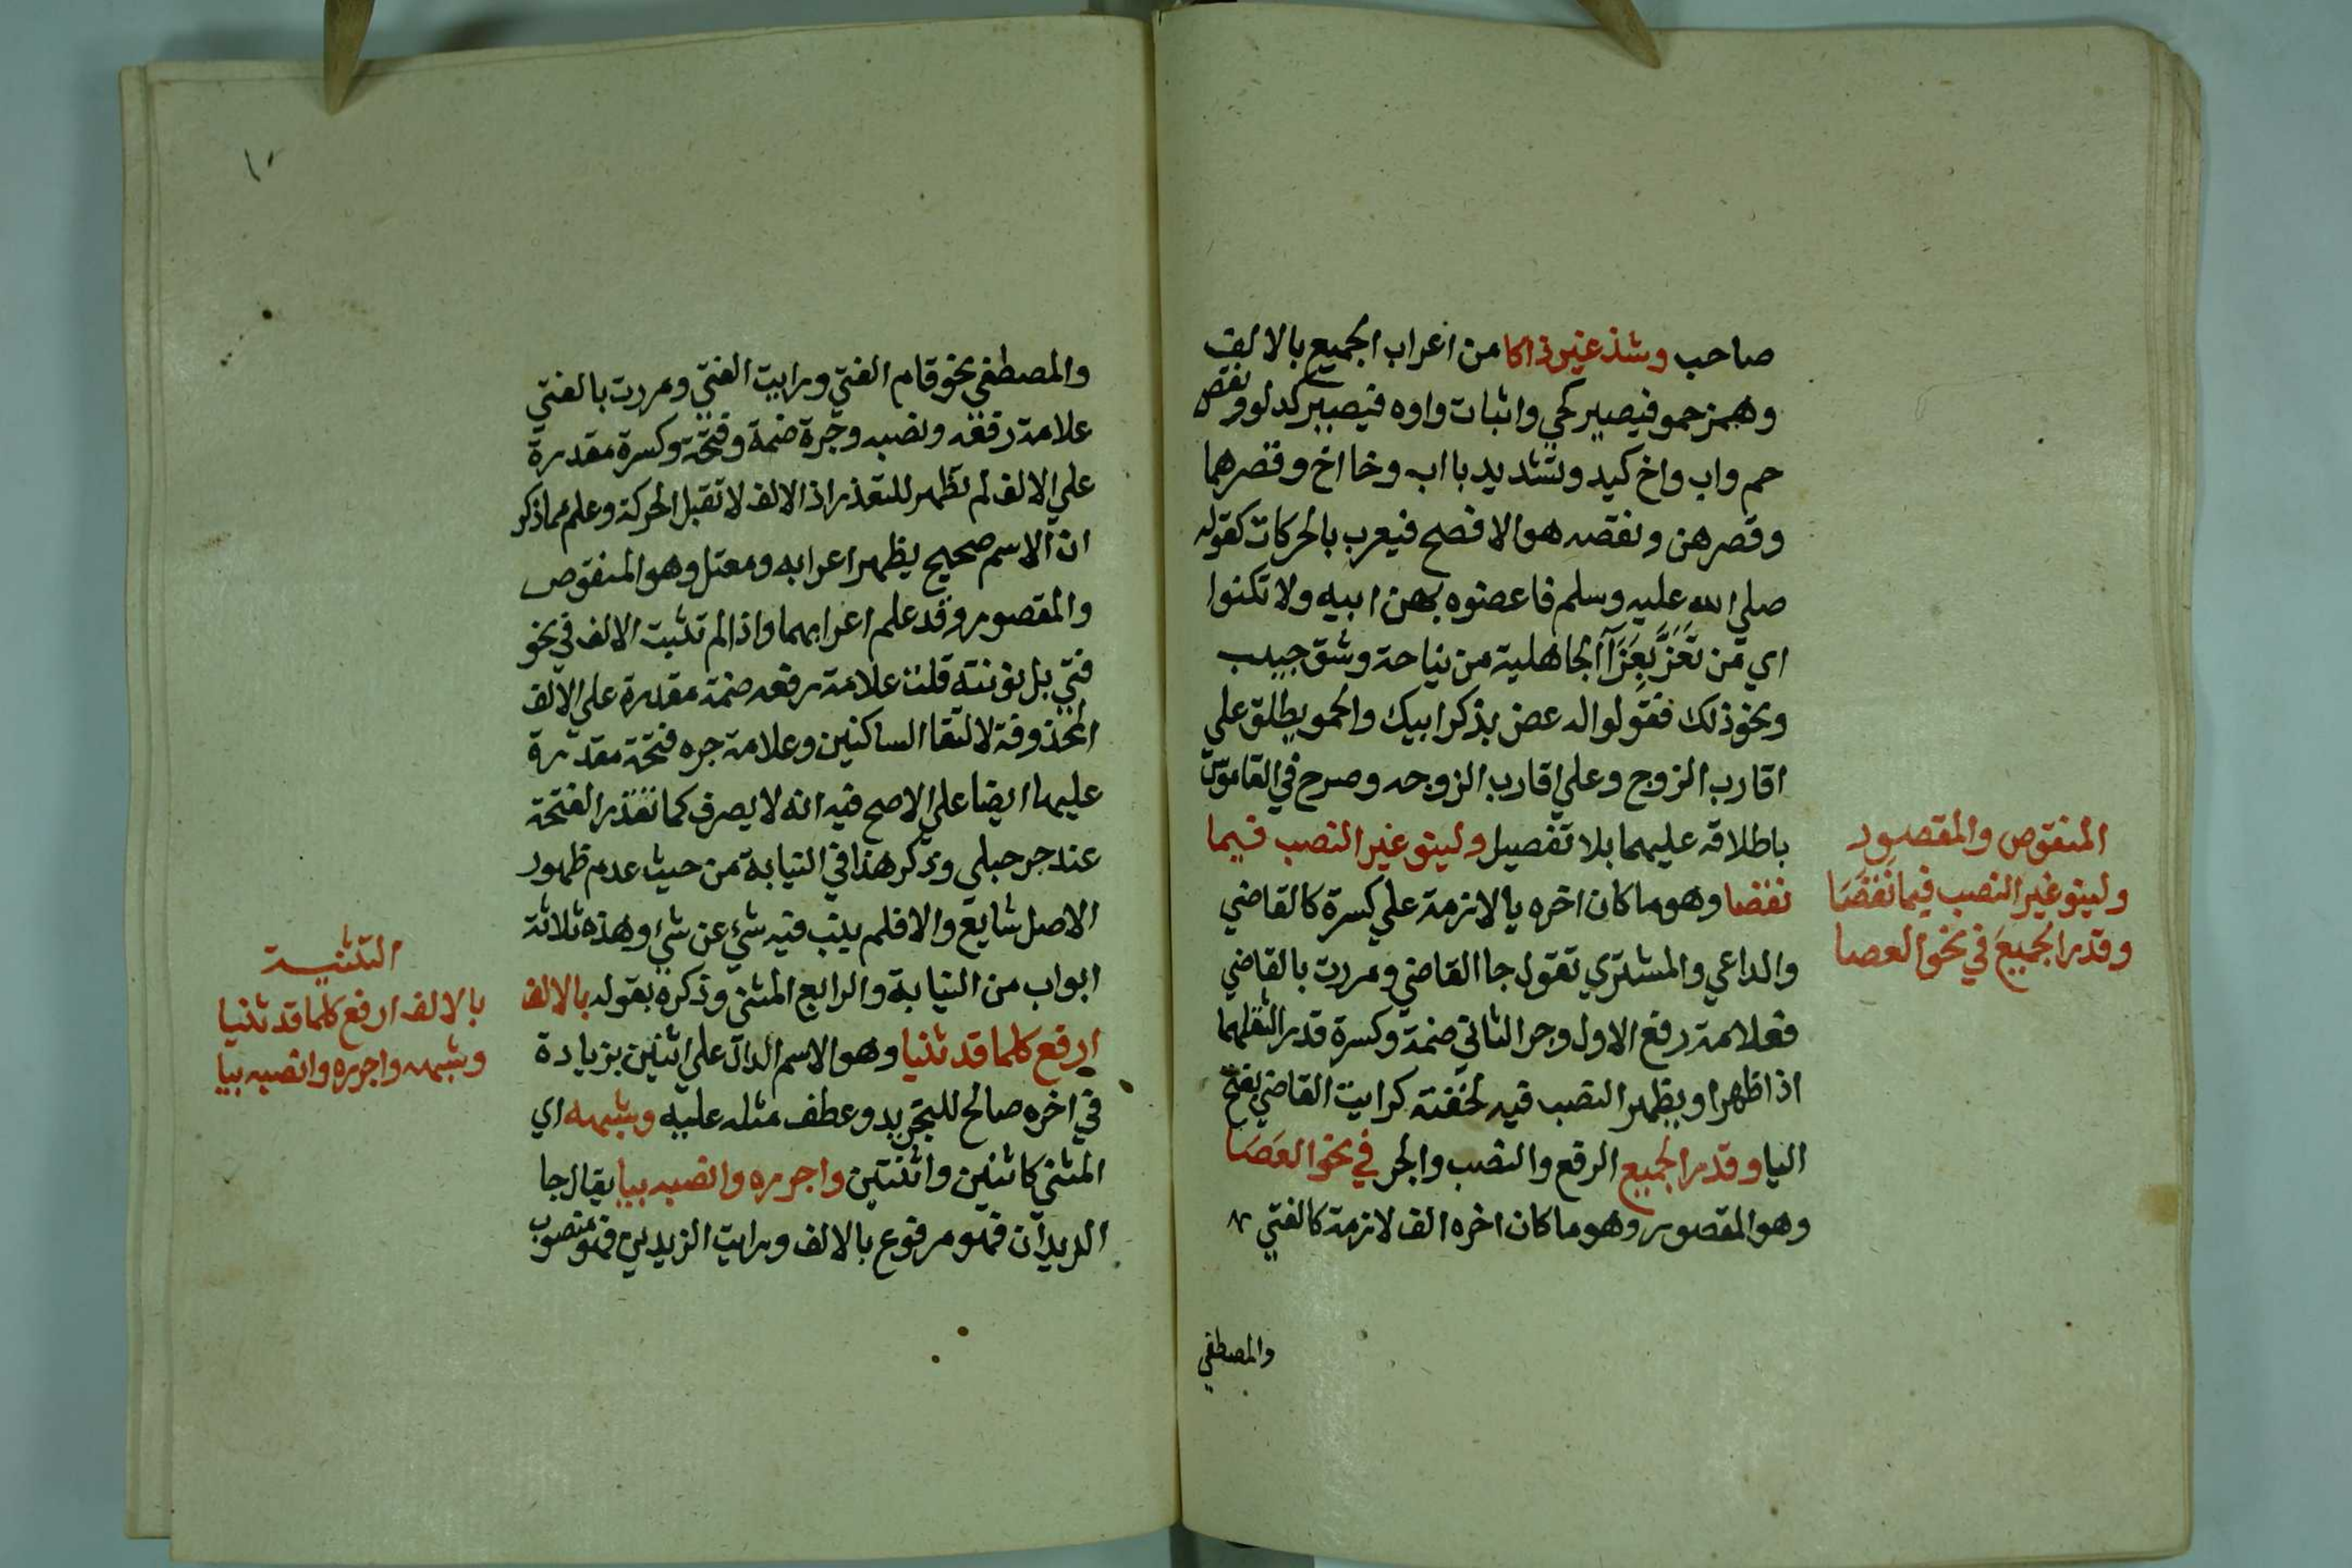 صاحب وشذ غير ذاكا من اعراب الجميع بالالف
وهمز حمو فيصير كحي واثبات واوه فيصير كدلو ونقص
حم واب واخ كيد وتشديد با اب وخا اخ وقصرهما
وقصر هن ونقصه هو الافصح فيعرب بالحركات كقوله
صلي الله عليه وسلم فاعضوه بهن ابيه ولا تكنوا
اي من تَعَزَّ بِعَزَآ الجاهلية من نياحة وشق جيب
ونحو ذلك فقولوا له عض بذكر ابيك والحمو يطلق علي
اقارب الزوج وعلي اقارب الزوجه وصرح في القاموس
باطلاقه عليهما بلا تفصيل ولينو غير النصب فيما
نقضا وهو ما كان اخره يا لازمة علي كسرة كالقاضي
والداعي والمشتري تقول جا القاضي ومررت بالقاضي
فعلامة رفع الاول وجر الثاني ضمة وكسرة قدر الثقلهما
اذا ظهرا ويظهر النصب فيه لخفته كرايت القاضي بفتح
اليا وقدر الجميع الرفع والنصب والجر في نحو العَصَا
وهو المقصور وهو ما كان اخره الف لازمة كالفتي
والمصطفي
المنقوص والمقصور
ولينو غير النصب فيما نقضَا
وقدر الجميعَ في نحو العصا
١٠
والمصطفي نحو قام الفتي ورايت الفتي ومررت بالفتي
علامة رفعه ونصبه وجرة ضمة وفتحة وكسرة مقدرة
علي الالف لم تظهر للتعذر اذ الالف لا تقبل الحركة وعلم مما ذكر
ان الاسم صحيح يظهر اعرابه ومعتل وهو المنقوص
والمقصور وقد علم اعرابهما واذا لم تثبت الالف في نحو
فتي بل نونته قلت علامة رفعه ضمة مقدرة علي الالف
المحذوفة لالتقا الساكنين وعلامة جره فتحة مقدرة
عليها ايضا علي الاصح فيه انه لا يصرف كما تقدر الفتحة
عند جر حبلي وذكر هذا في النيابة من حيث عدم ظهور
الاصل شايع والا فلم ينب فيه شي عن شي وهذه ثلاثة
ابواب من النيابة والرابع المثني وذكره بقوله بالالف
ارفع كلما قد ثنيا وهو الاسم الدال علي اثنين بزيادة
في اخره صالح للتجريد وعطف مثله عليه وشبهه اي
المثني كاثنين واثنتين واجرره وانصبه بيا يقال جا
الزيدان فهو مرفوع بالالف ورايت الزيدين فهو منصوب
التثنيـة
بالالف ارفع كلما قد ثنيا
وشبهه واجرره وانصبه بيا